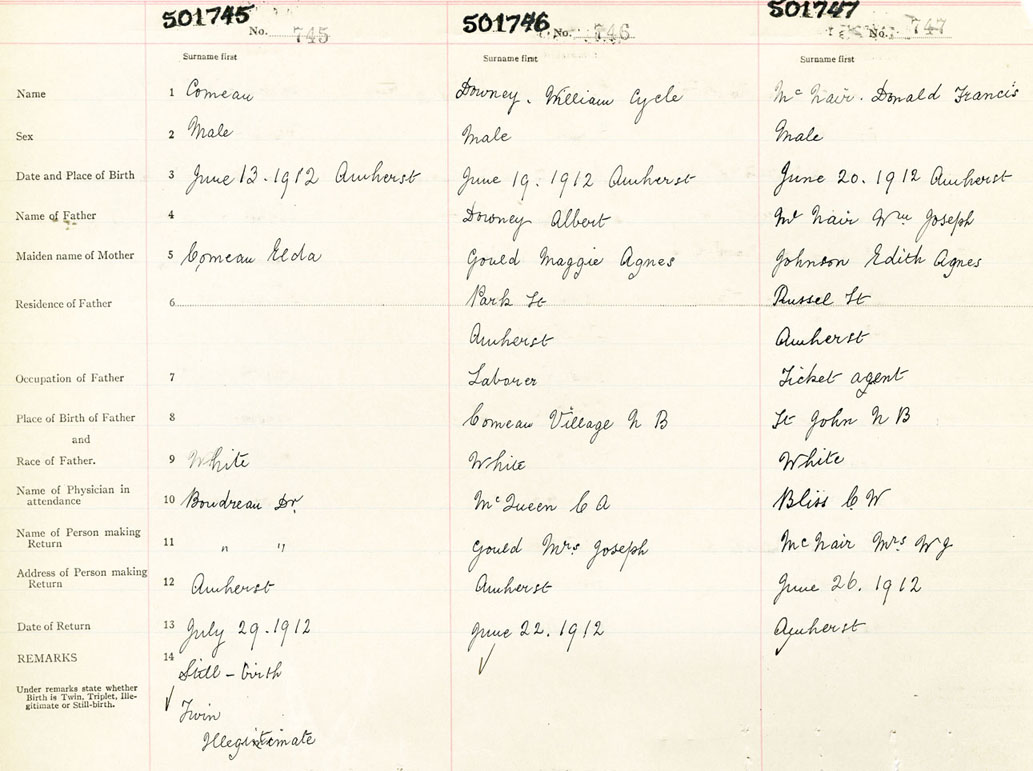 501745 501746 501747
No. 745 No. 746 No. 747
Surname first Surname first Surname first
Name 1 Comeau Downey. William Cycle Mc Nair. Donald Francis
Sex 2 Male Male Male
Date and Place of Birth 3 June 13. 1912 Amherst June 19. 1912 Amherst June 20. 1912 Amherst
Name of Father 4 Downey Albert Mc Nair Wm Joseph
Maiden name of Mother 5 Comeau Elda Gould Maggie Agnes Johnson Edith Agnes
Residence of Father 6 Park St Russel St
Amherst Amherst
Occupation of Father 7 Laborer Ticket agent
Place of Birth of Father 8 Comeau Village N B St John N B
and
Race of Father. 9 White White White
Name of Physician in
attendance 10 Boudreau Dr. McQueen C A Bliss C W
Name of Person making
Return 11 " " Gould Mrs Joseph Mc Nair Mrs W J
Address of Person making
Return 12 Amherst Amherst June 26. 1912
Date of Return 13 July 29. 1912 June 22. 1912 Amherst
REMARKS 14 Still - birth
Under remarks state whether
Birth is Twin, Triplet, Ille-
gitimate or Still-birth.
Twin
Illegintimate